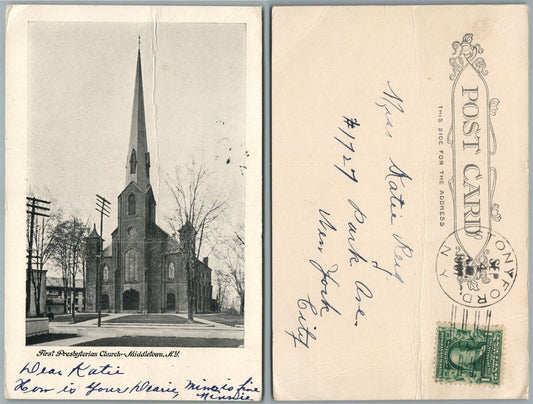 First Presbyterian Church—Middletown, N.Y.
Dear Katie
How is Your Dearie, Mine is fine
Minnie
POST CARD
THIS SIDE FOR THE ADDRESS
Miss Katie
#1727 Park Ave.
New York
City
SEP
N.Y.